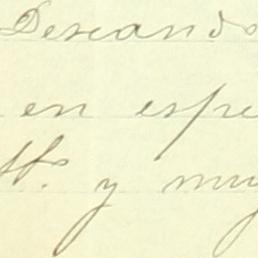 Deseando
en espe
Affo. y muy